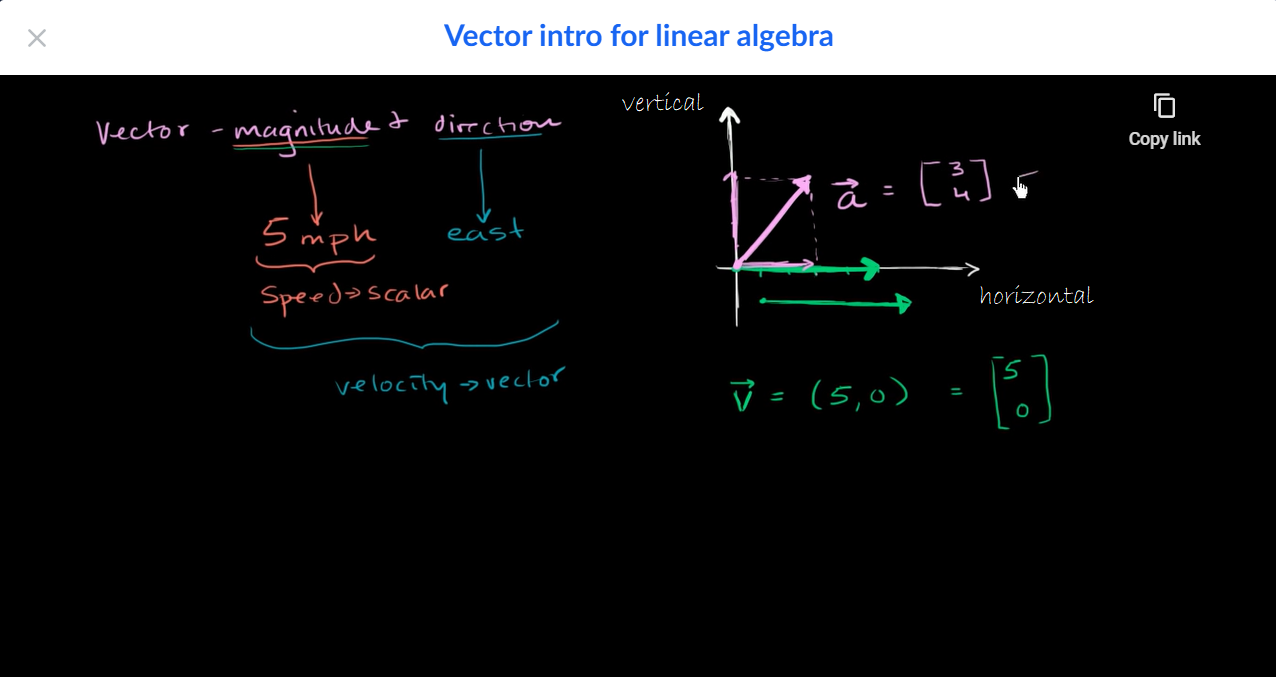 Vector intro for linear algebra
Copy link
Vector - magnitude & direction
5 mph
east
Speed → scalar
velocity → vector
vertical
a⃗ = [3 4]
horizontal
v⃗ = (5,0) = [5 0]